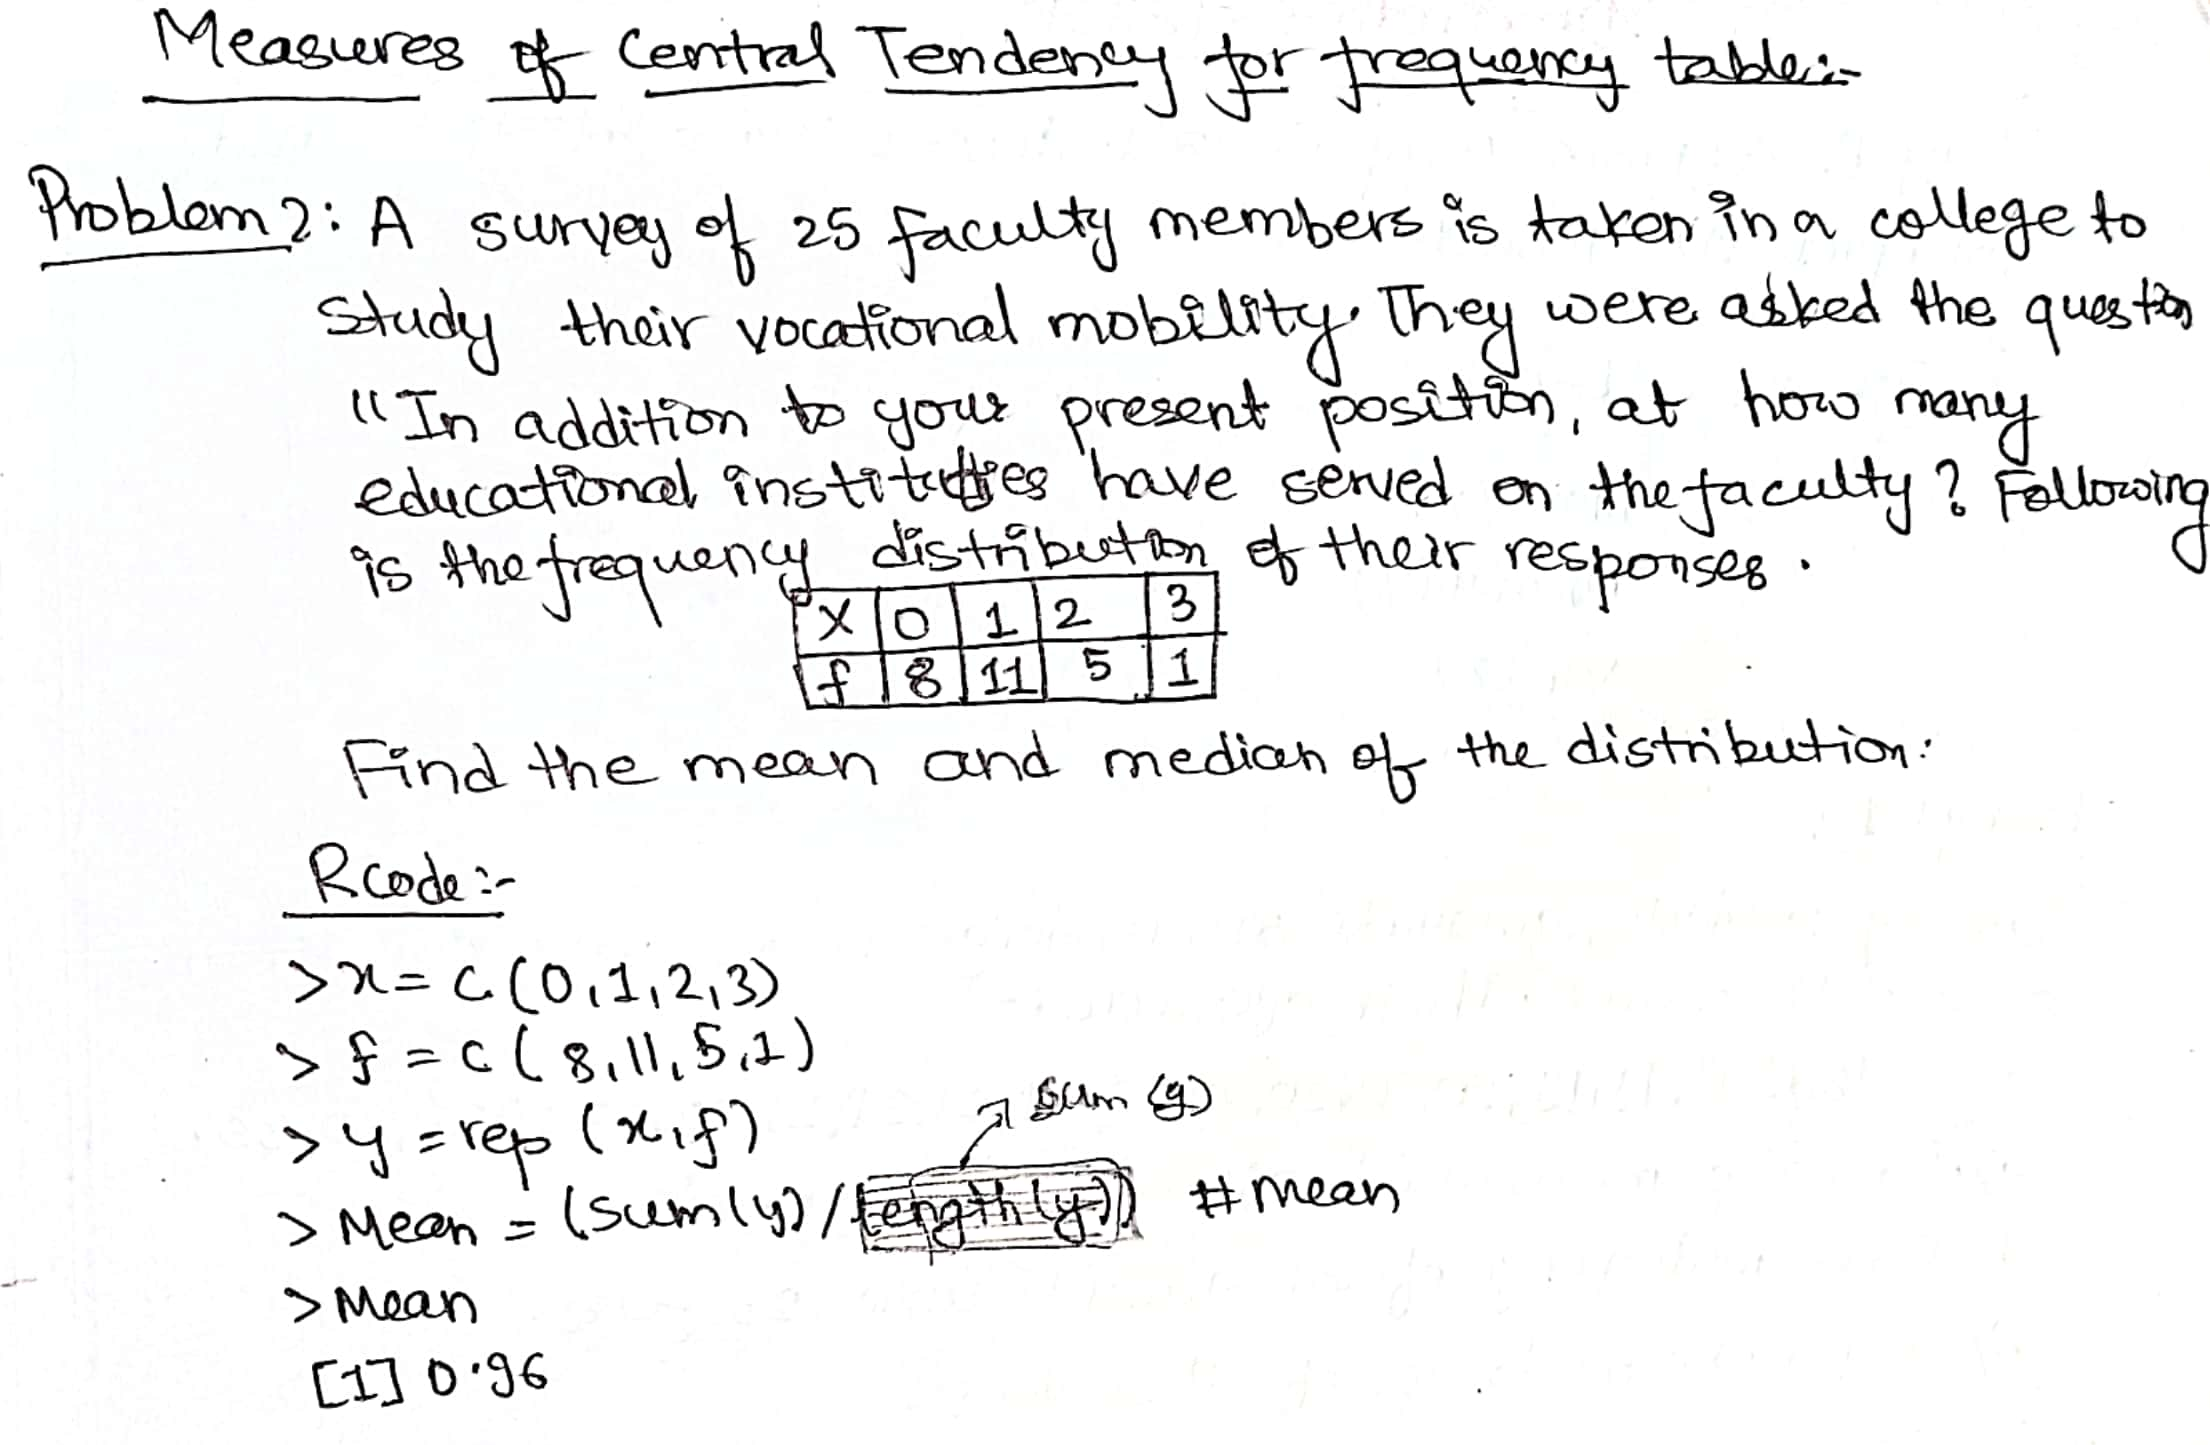 Measures of Central Tendency for frequency table:-
Problem 2: A survey of 25 faculty members is taken in a college to
study their vocational mobility. They were asked the question
"In addition to your present position, at how many
educational institutes have served on the faculty? Following
is the frequency distribution of their responses.
X 0 1 2 3
f 8 11 5 1
Find the mean and median of the distribution:
Rcode:-
> x = c(0,1,2,3)
> f = c(8,11,5,1)
> y = rep(x,f)
sum(y)
> Mean = (sum(y)/length(y)) #mean
> Mean
[1] 0.96